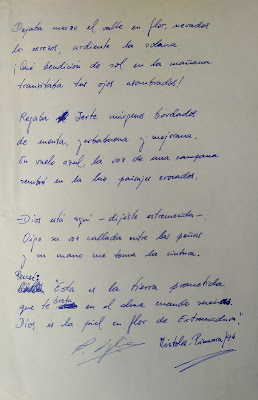 Dejaba marzo el valle en flor, nevados
los cerezos, ardiente la solana
¡Qué bendición de sol en la mañana
transitaba tus ojos asombrados!
Regaba Jerte márgenes bordados
de menta, yerbabuena y mejorana.
En vuelo azul, la voz de una campana
sembró en la luz paisajes evocados.
-Dios está aquí - dijiste estremecida-.
Oigo su voz callada entre las peñas
y su mano me toma la cintura.
Pensé:
"Esta es la tierra prometida
que te brota en el alma cuando sueñas.
Dios es la piel en flor de Extremadura".
Móstoles. Primavera/94